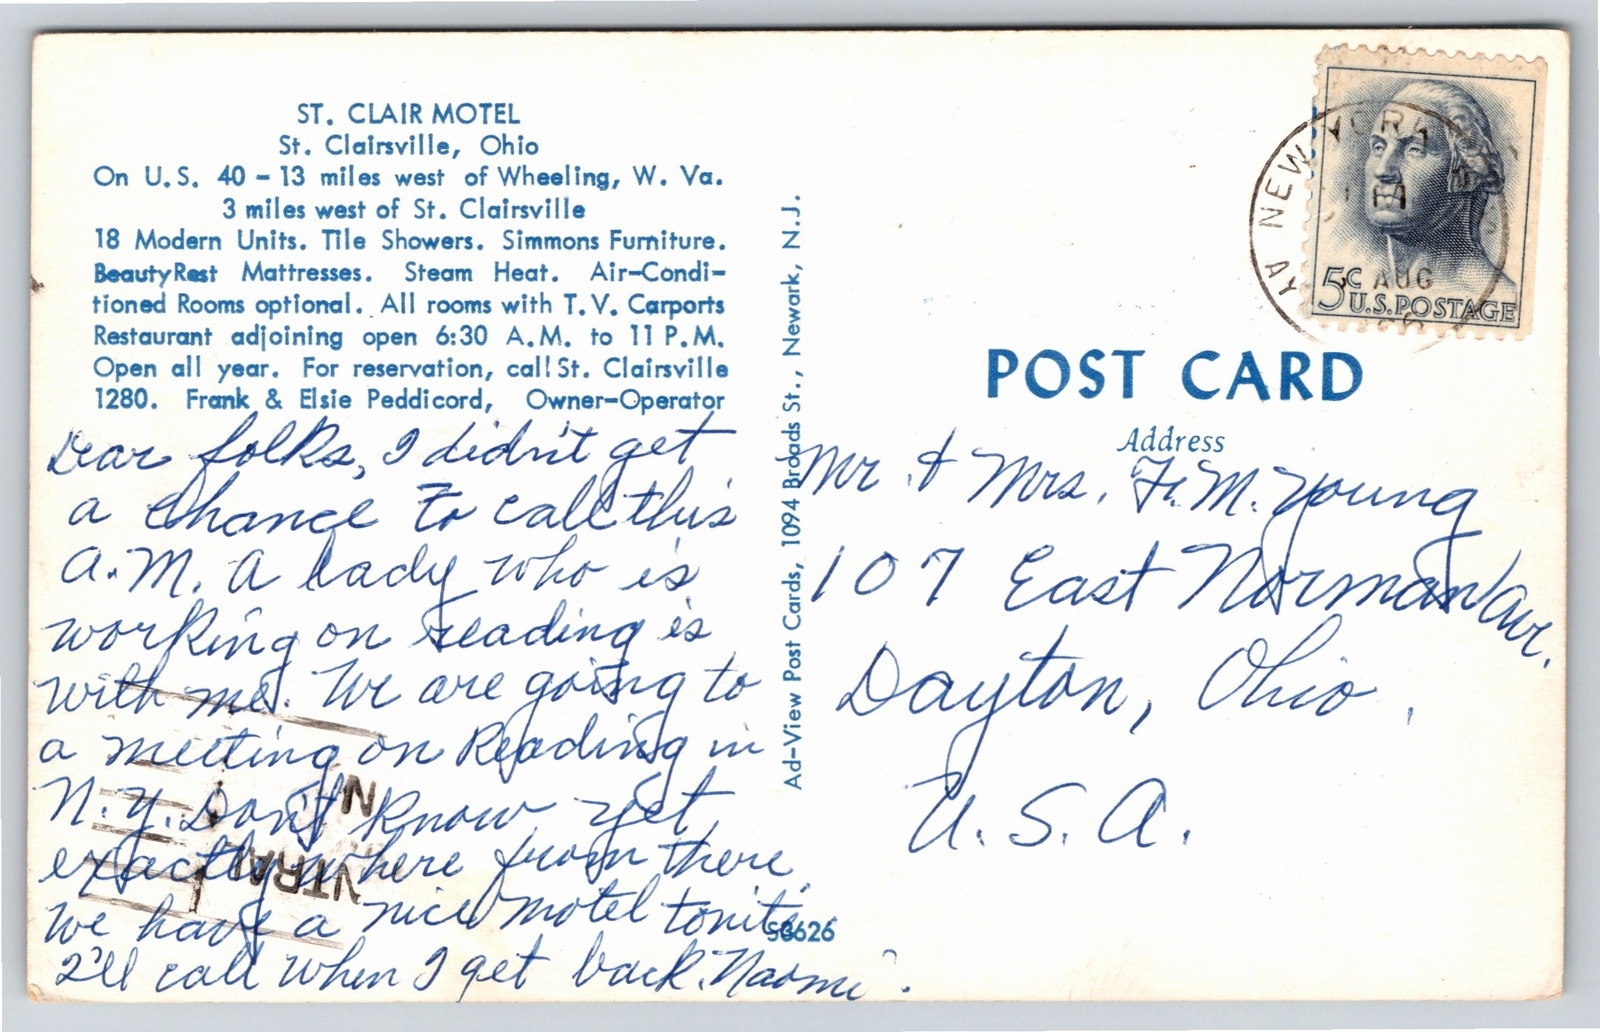 ST. CLAIR MOTEL
St. Clairsville, Ohio
On U.S. 40 - 13 miles west of Wheeling, W. Va.
3 miles west of St. Clairsville
18 Modern Units. Tile Showers. Simmons Furniture.
BeautyRest Mattresses. Steam Heat. Air-Condi-
tioned Rooms optional. All rooms with T.V. Carports
Restaurant adjoining open 6:30 A.M. to 11 P.M.
Open all year. For reservation, call St. Clairsville
1280. Frank & Elsie Peddicord, Owner-Operator
Dear folks, I didn't get
a chance to call this
A.M. A lady who is
working on reading is
with me. We are going to
a meeting on Reading in
N.Y. Don't know yet
exactly where from there.
We have a nice motel tonite.
I'll call when I get back. Naomi.
Ad-View Post Cards, 1094 Broads St., Newark, N.J.
S8626
NEW YORK
AUG
5¢ U.S. POSTAGE
POST CARD
Address
Mr & Mrs. F. M. Young
107 East Norman Ave.
Dayton, Ohio,
U.S.A.